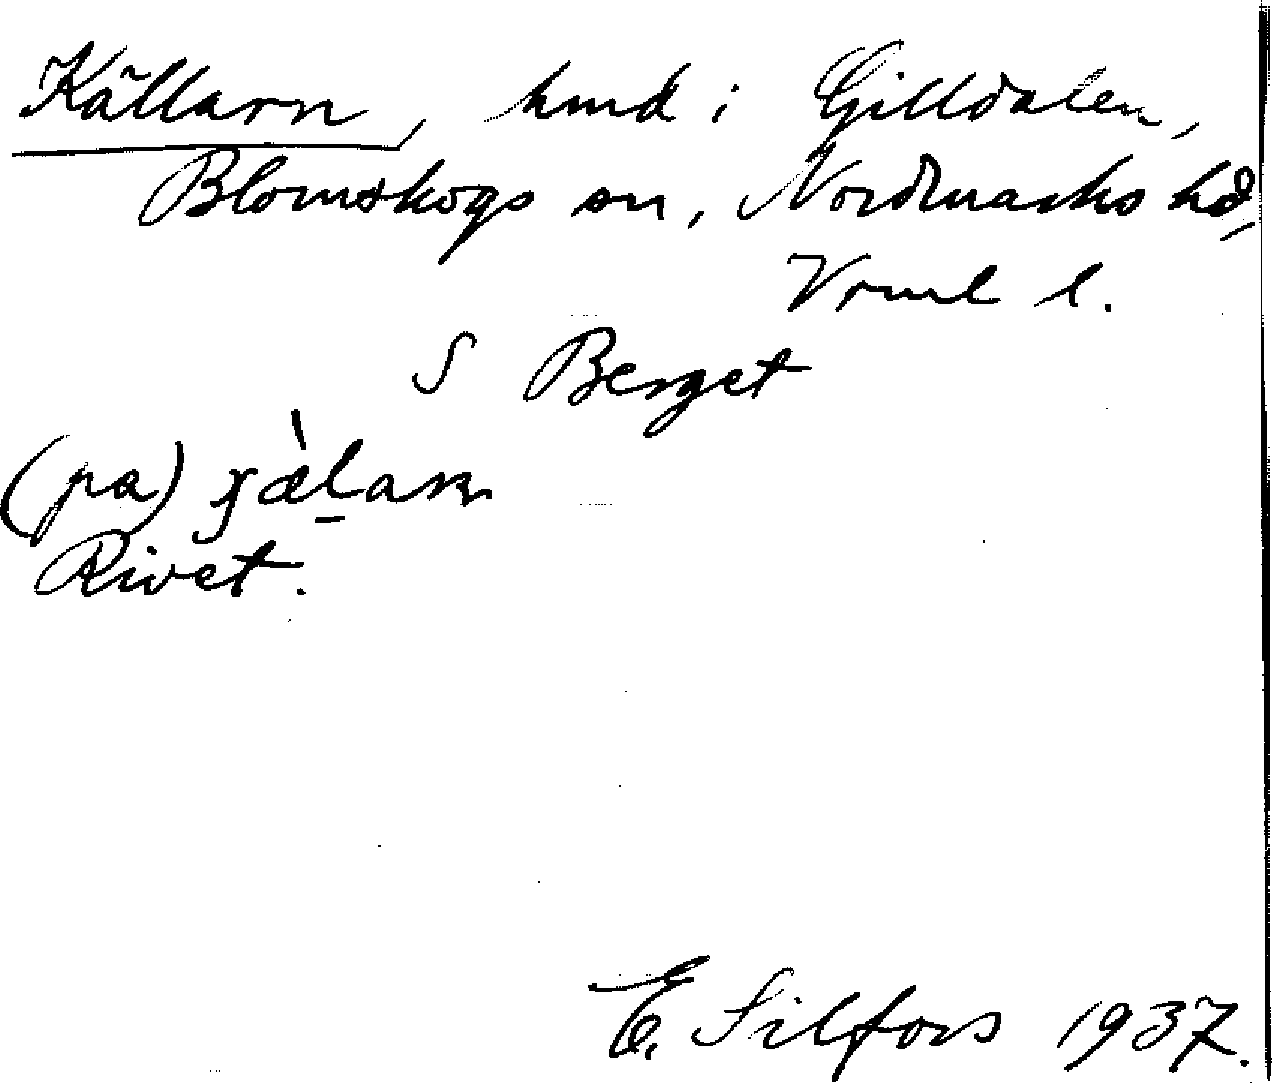 Källarn, hmd i Gilldalen,
Blomskogs sn, Nordmarks hd,
Vrml l.
S Berget
(pa)
Rivet.
E. Silfors 1937.